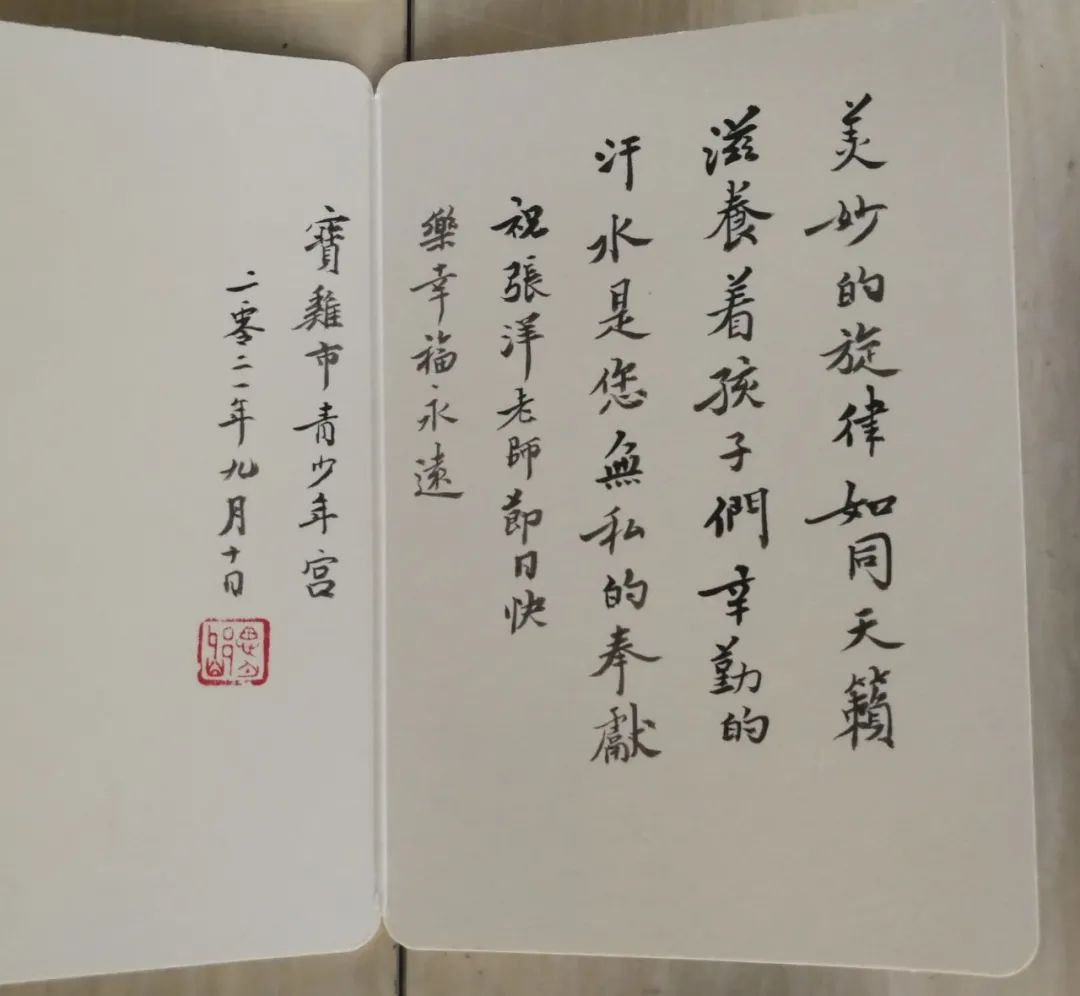 美妙的旋律如同天籟
滋養着孩子們辛勤的
汗水是您無私的奉獻
祝張洋老師節日快
樂幸福永遠
寶雞市青少年宮
二零二一年九月十日